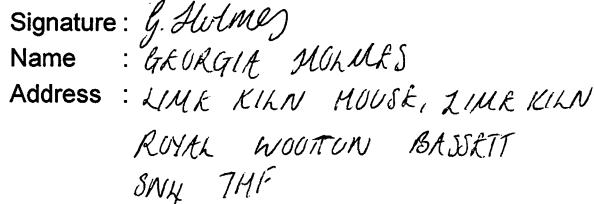 Signature : G. Holmes
Name : GEORGIA HOLMES
Address : LIME KILN HOUSE, LIME KILN
ROYAL WOOTTON BASSETT
SN4 7HF